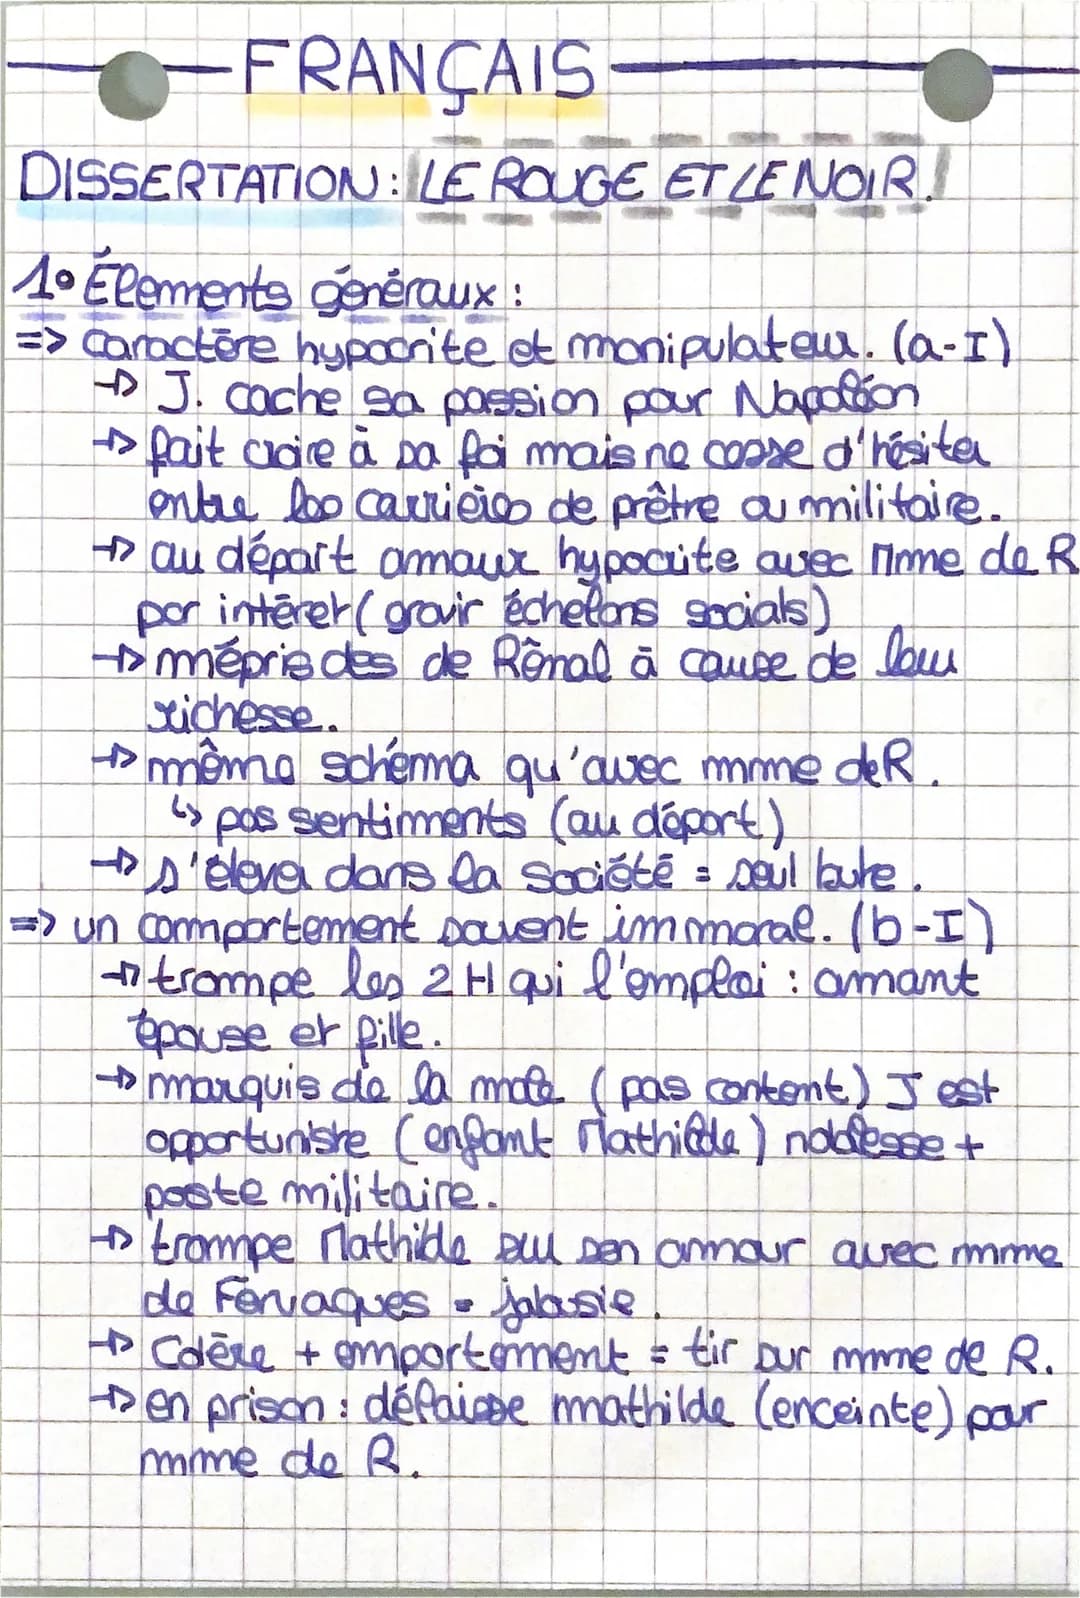 FRANÇAIS
DISSERTATION: LE ROUGE ET LE NOIR.
1° Élements généraux :
=> Caractère hypocrite et manipulateur. (a-I)
→ J. cache sa passion pour Napoléon
→ fait croire à sa foi mais ne cesse d'hésiter
entre les carrières de prêtre ou militaire.
→ au départ amour hypocrite avec Mme de R
par intérêt (gravir échelons socials)
→ mépris des de Rênal à cause de leur
richesse.
→ même schéma qu'avec mme de R.
↳ pas sentiments (au départ)
→ s'élever dans la société = seul bute.
=> un comportement souvent immoral. (b-I)
→ trompe les 2 H qui l'emploi : amant
épouse et fille.
→ marquis de la mole (pas content) J est
opportuniste (enfant Mathilde) noblesse +
poste militaire.
→ trompe Mathilde sur son amour avec mme
de Fervaques = jalousie.
→ Colère + emportement = tir sur mme de R.
→ en prison : délaisse mathilde (enceinte) pour
mme de R.